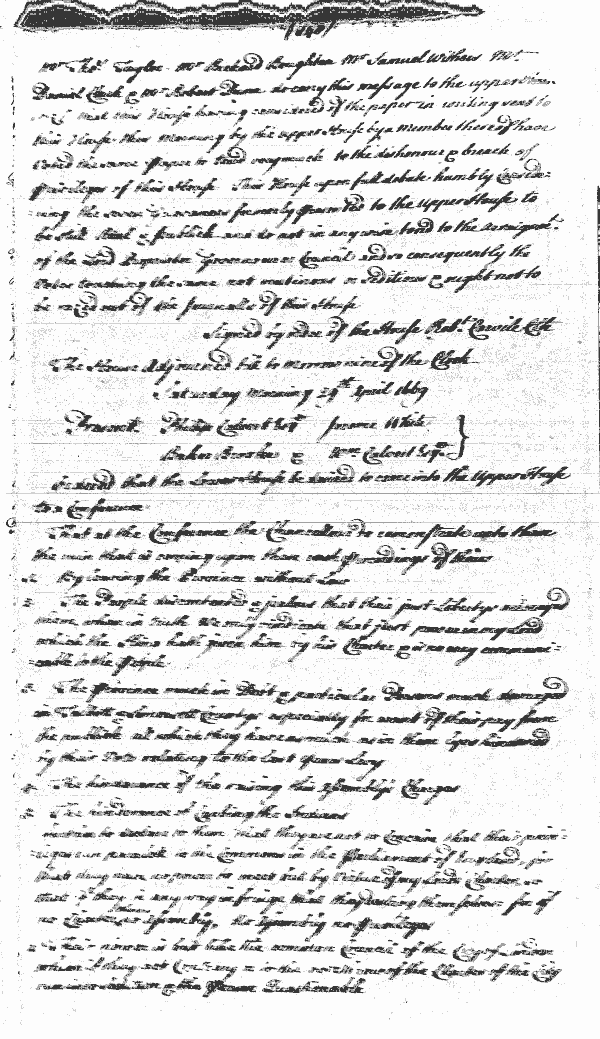 Mr Thos. Taylor Mr Richard Boughton Mr Samuel Withers Mr
Daniel Clark & Mr Robert Dunn do carry this message to the upper
that this House having considered of the paper in writing sent to
this House this Morning by the upper House by a member thereof have
Voted the same Paper to tend very much to the dishonour & breach of
Priviledges of this House This House upon full debate humbly
the seven Grievances formerly presented to the upper House to
be still Real & publick and do not in any wise tend to the
of the Lord Proprietor Governour or Council and so consequently the
Votes touching the same not mutinous or Seditious & ought not to
be razed out of the Journalls of this House
Signed by order of the House Robt. Carvile Clk
The House Adjourned till to morrow nine of the Clock
Saturday Morning 24th April 1669
Present Philip Calvert Esqr Jerome White
Baker Brooke & Wm Calvert Esqrs
Ordered that the Lower House be desired to come into the Upper House
to a Conference
That at the Conference the Chancellour do remonstrate unto them
the ruin that is coming upon them and proceedings of theirs
By leaving the Province without Law
The People discontented & jealous that their just Libertys
them, when in truth We only vindicate that just power in my Lord
which the King hath given him by his Charter & is no way
to the People
3. The Province much in Debt & particular Persons much
in Talbott & Somersett Countys especially for want of their pay from
the publick all which they have as much as in them lyes hindered
by their Vote relating to the last years Levy
4. The hinderance of the raising this Assembly's Charges
5. The hinderance of the Indians
to declare to them That they are not to Conceive that their
are to the Commons in the Parliament of England, for
that they have no power to meet but by Virtue of my Lords Charter, so
that if they in any way infringe that they destroy themselves for if
no Charter no Assembly, No Assembly no Priviledges
Their power is but like the common Council of the City of London
which if they act Contrary to the of the Charter of the City